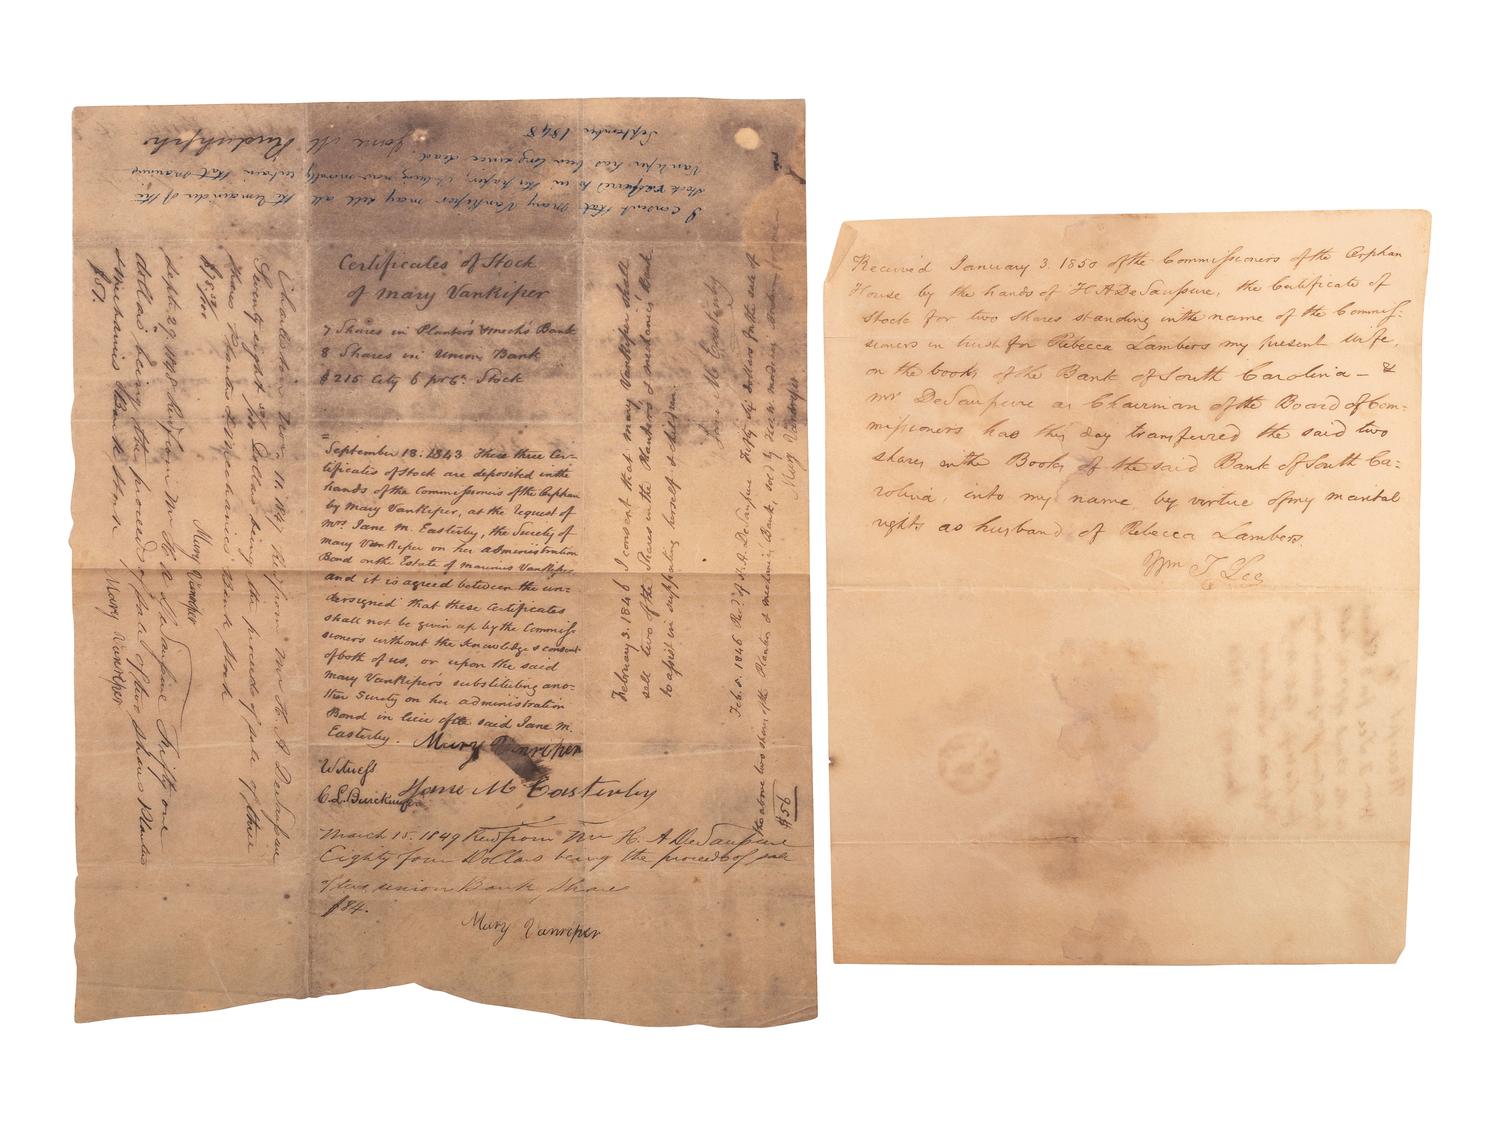 I consent that Mary VanRiper may sell all the remainder of the
Stock referred to in this paper, it being now morally certain that Marinus
VanRiper has been long since dead.
September 1848 Jane M
Certificates of Stock
of Mary VanRiper
7 Shares in Planters & Mech's Bank
8 Shares in Union Bank
$215 City 6 pr Ct. Stock
September 18. 1843 These three Cer-
tificates of Stock are deposited in the
hands of the Commissioners of the Orphan
by Mary VanRiper, at the request of
Mrs. Jane M. Easterby, the Surety of
Mary VanRiper on her administration
Bond on the Estate of Marinus VanRiper,
and it is agreed between the un-
dersigned that these Certificates
shall not be given up by the Commiss
sioners without the knowledge & consent
of both of us, or upon the said
Mary VanRiper's substituting ano-
ther Surety on her administration
Bond in lieu of the said Jane M.
Easterby. Mary Vanriper
Witness
Jane M Easterby
C. L.
March 15. 1849 Recd from Mr H. A DeSaussure
Eighty four Dollars being the proceeds of sale
of two union Bank Share
$84.
Mary Vanriper
February 3. 1846 I consent that Mary VanRiper shall
sell two of the Shares in the Planters & Mechanics Bank
to assist in supporting herself & children.
Jane M Easterby
Feb. 5. 1846 Recd. of H. A. DeSaussure Fifty six dollars for the sale of
the above two shares of the Planters & Mechanics Bank, sold by
Mary Vanreper
$56
Charleston Nov. 11. 1847 Recd from Mr H. A DeSaussure
Seventy eight Dollars being the proceeds of sale of three
Shares Planters & Mechanics Bank Stock
Mary Vanreper
Sept. 29. 1848 Recd from Mr H A DeSaussure Fifty one
dollars being the proceeds of sale of two shares Planters
& Mechanics Bank Stock Mary Vanreper
$51.
Received January 3. 1850 of the Commissioners of the Orphan
House by the hands of H. A DeSaussure, the Certificate of
Stock for two shares standing in the name of the Commis-
sioners in trust for Rebecca Lambers my present wife,
on the books of the Bank of South Carolina — &
Mr DeSaussure as Chairman of the Board of Com-
missioners has this day transferred the said two
shares in the Books of the said Bank of South Ca-
rolina, into my name, by virtue of my marital
rights as husband of Rebecca Lambers.
Wm T Lee